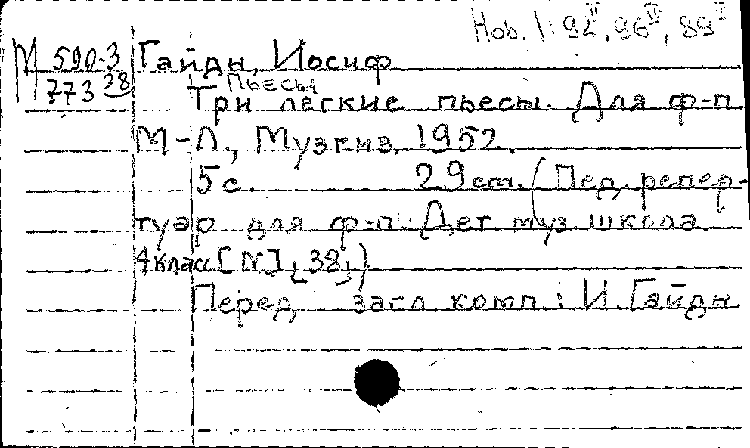 Нов. 1: 92II, 96IV, 89I
М 590-3 Гайдн, Иосиф
773 38 Пьесы
Три легкие пьесы. Для ф-п
М-Л., Музгиз, 1952.
5 с. 29 cm. (Пед. репер-
туар для ф-п. Дет муз школа
4 класс [N], 38;)
Перед засл комп.: И. Гайдн